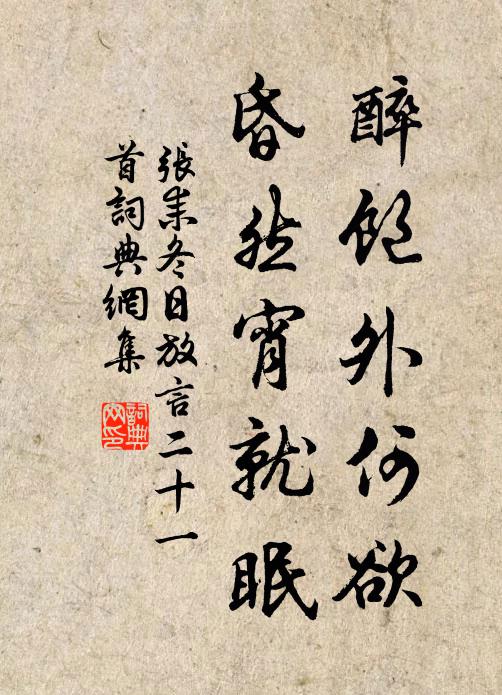 醉飽外何欲
昏然宵就眠
張耒冬日放言二十一
首詞典網集
詞典
网印